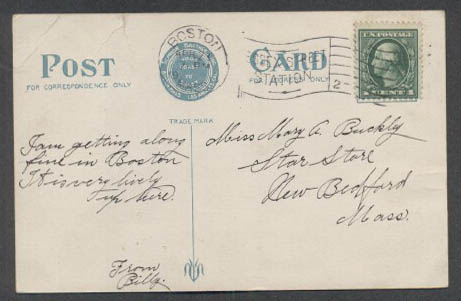 POST CARD
FOR CORRESPONDENCE ONLY
FOR CORRESPONDENCE ONLY
BOSTON
STATION
2
U.S. POSTAGE
CENT
TRADE MARK
I am getting along
fine in Boston
It is very lively
up here.
From
Billy.
Miss Mary A Buckly
Star Store
New Bedford
Mass.